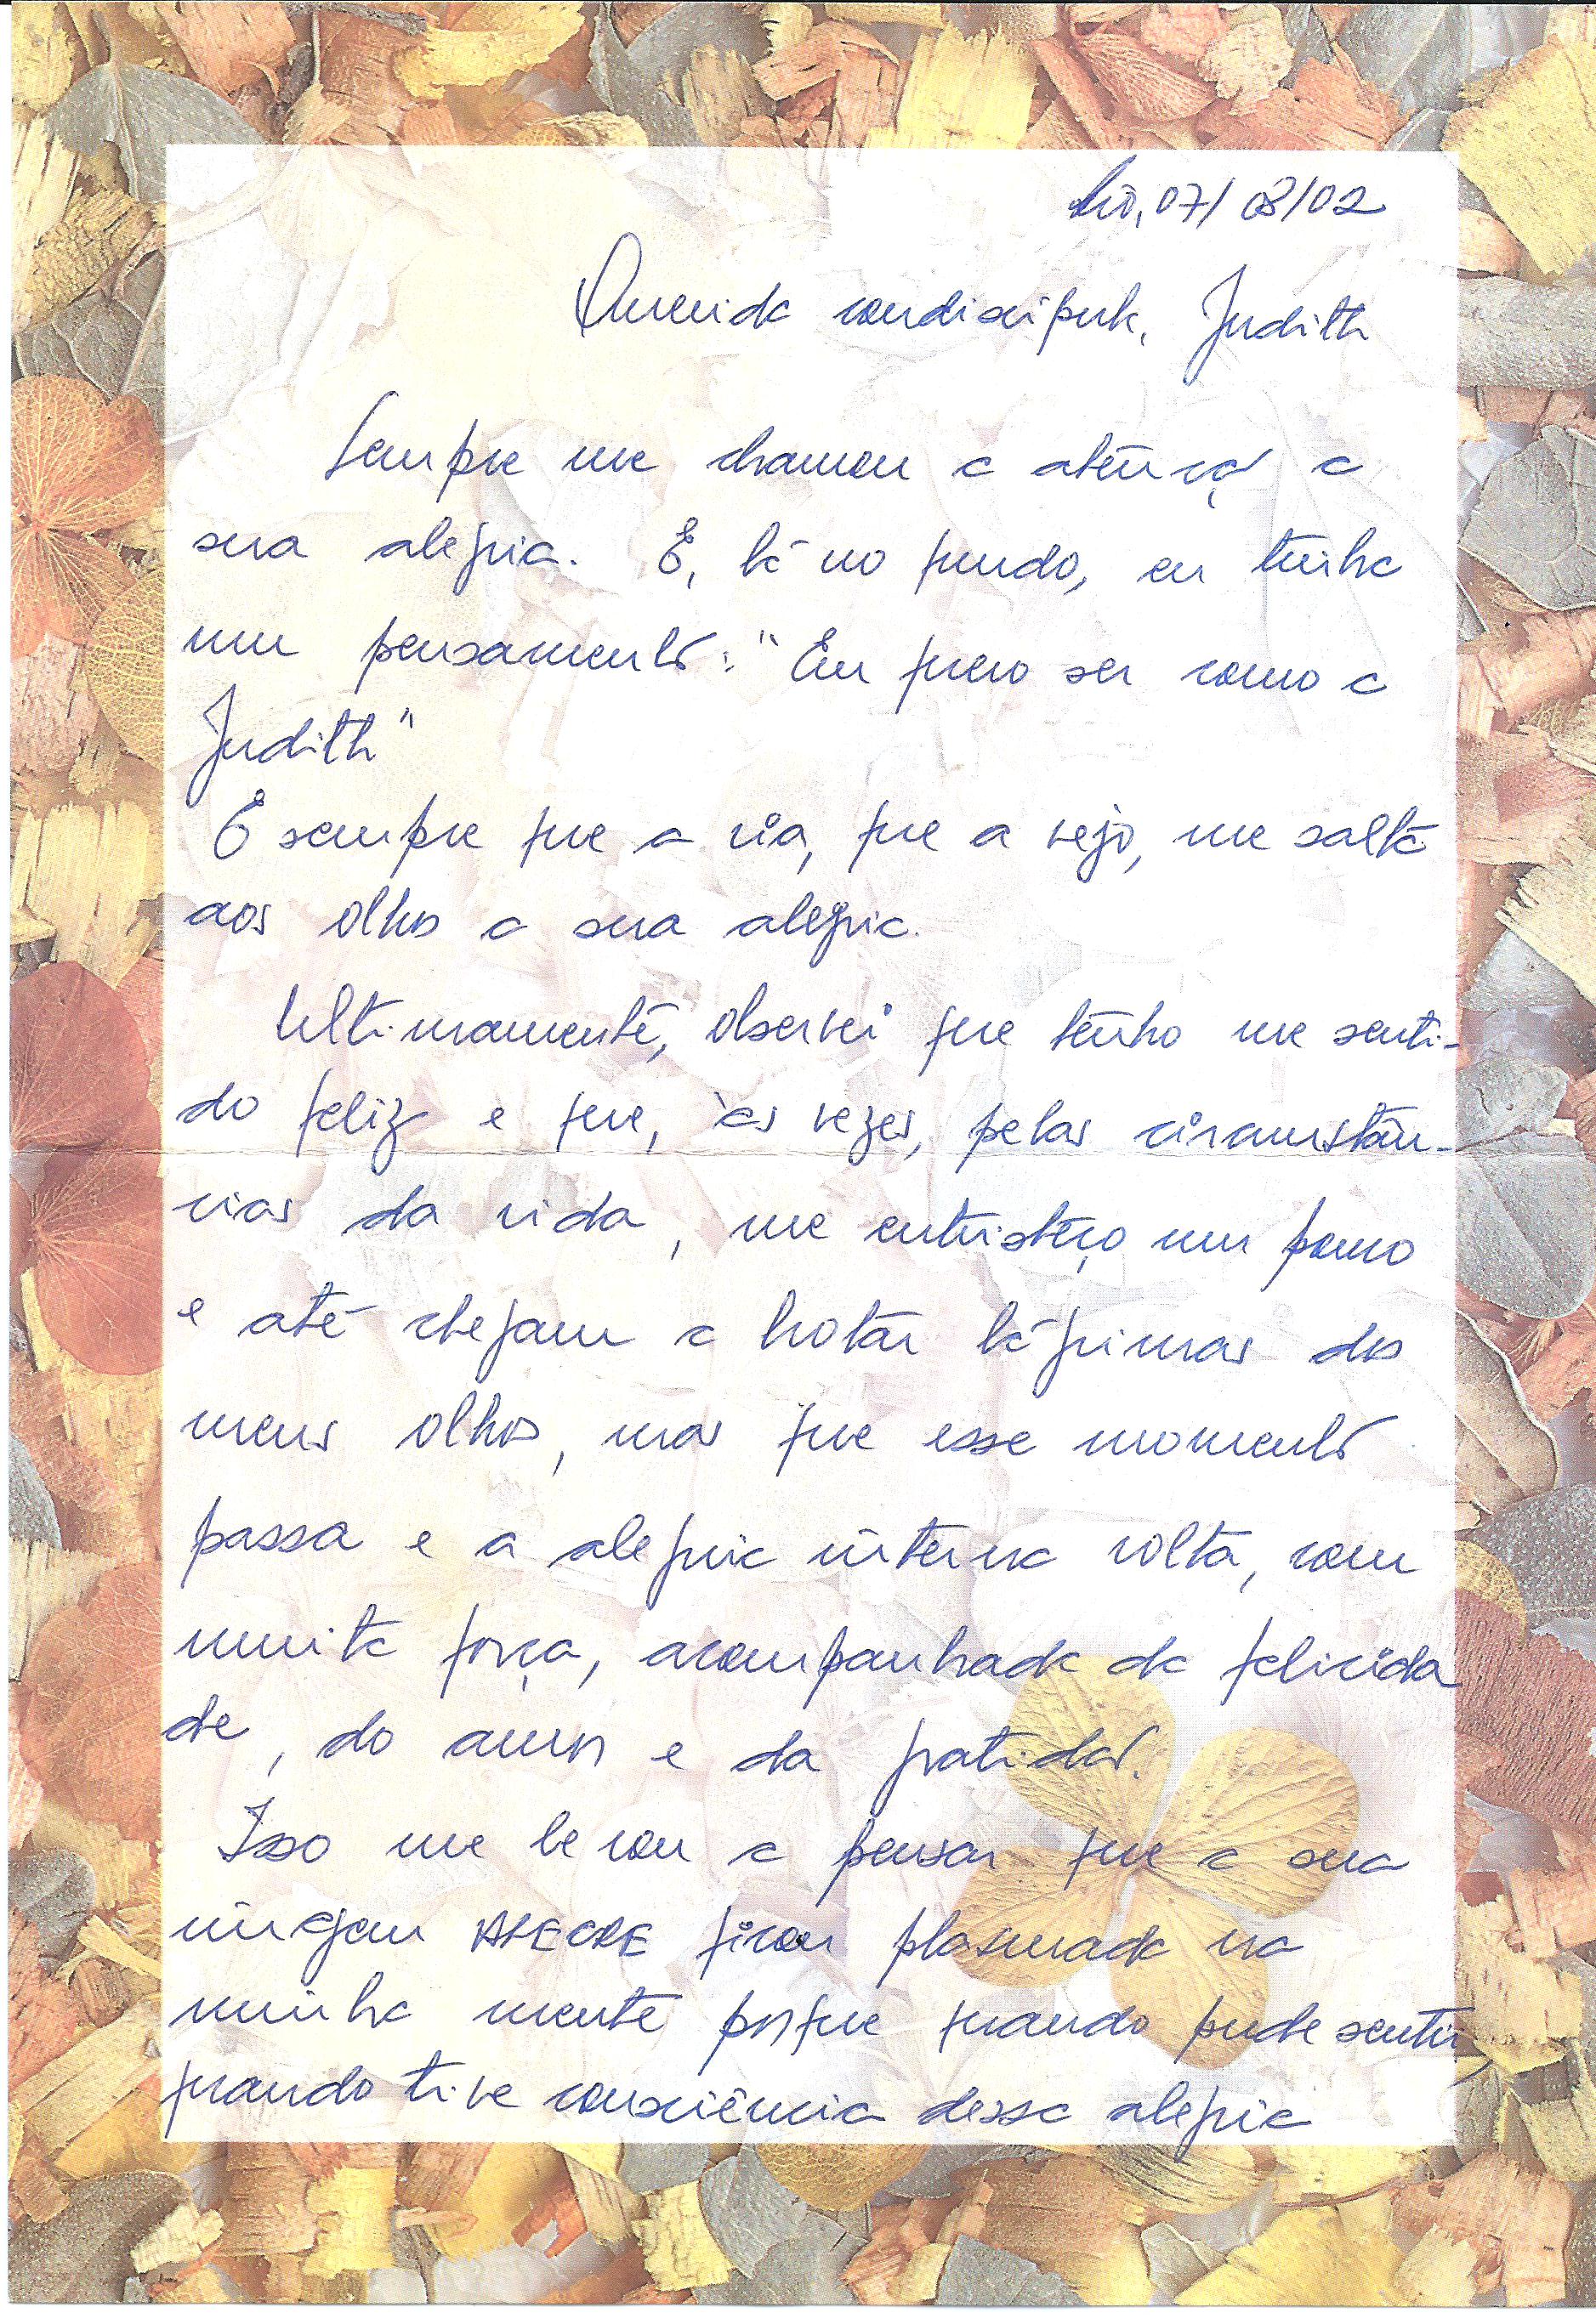 Rio, 07/08/02
Querida condiscípula, Judith
Sempre me chamou a atenção a
sua alegria. E, lá no fundo, eu tinha
um pensamento: "Eu quero ser como a
Judith"
E sempre que a via, que a vejo, me salta
aos olhos a sua alegria.
Ultimamente, observei que tenho me senti-
do feliz e que, às vezes, pelas circunstân-
cias da vida, me entristeço um pouco
e até chegam a brotar lágrimas dos
meus olhos, mas que esse momento
passa e a alegria interna volta, com
muita força, acompanhada da felicida
de, do amor e da gratidão.
Isso me levou a pensar que a sua
imagem ALEGRE ficou plasmada na
minha mente porque quando pude sentir,
quando tive consciência dessa alegria